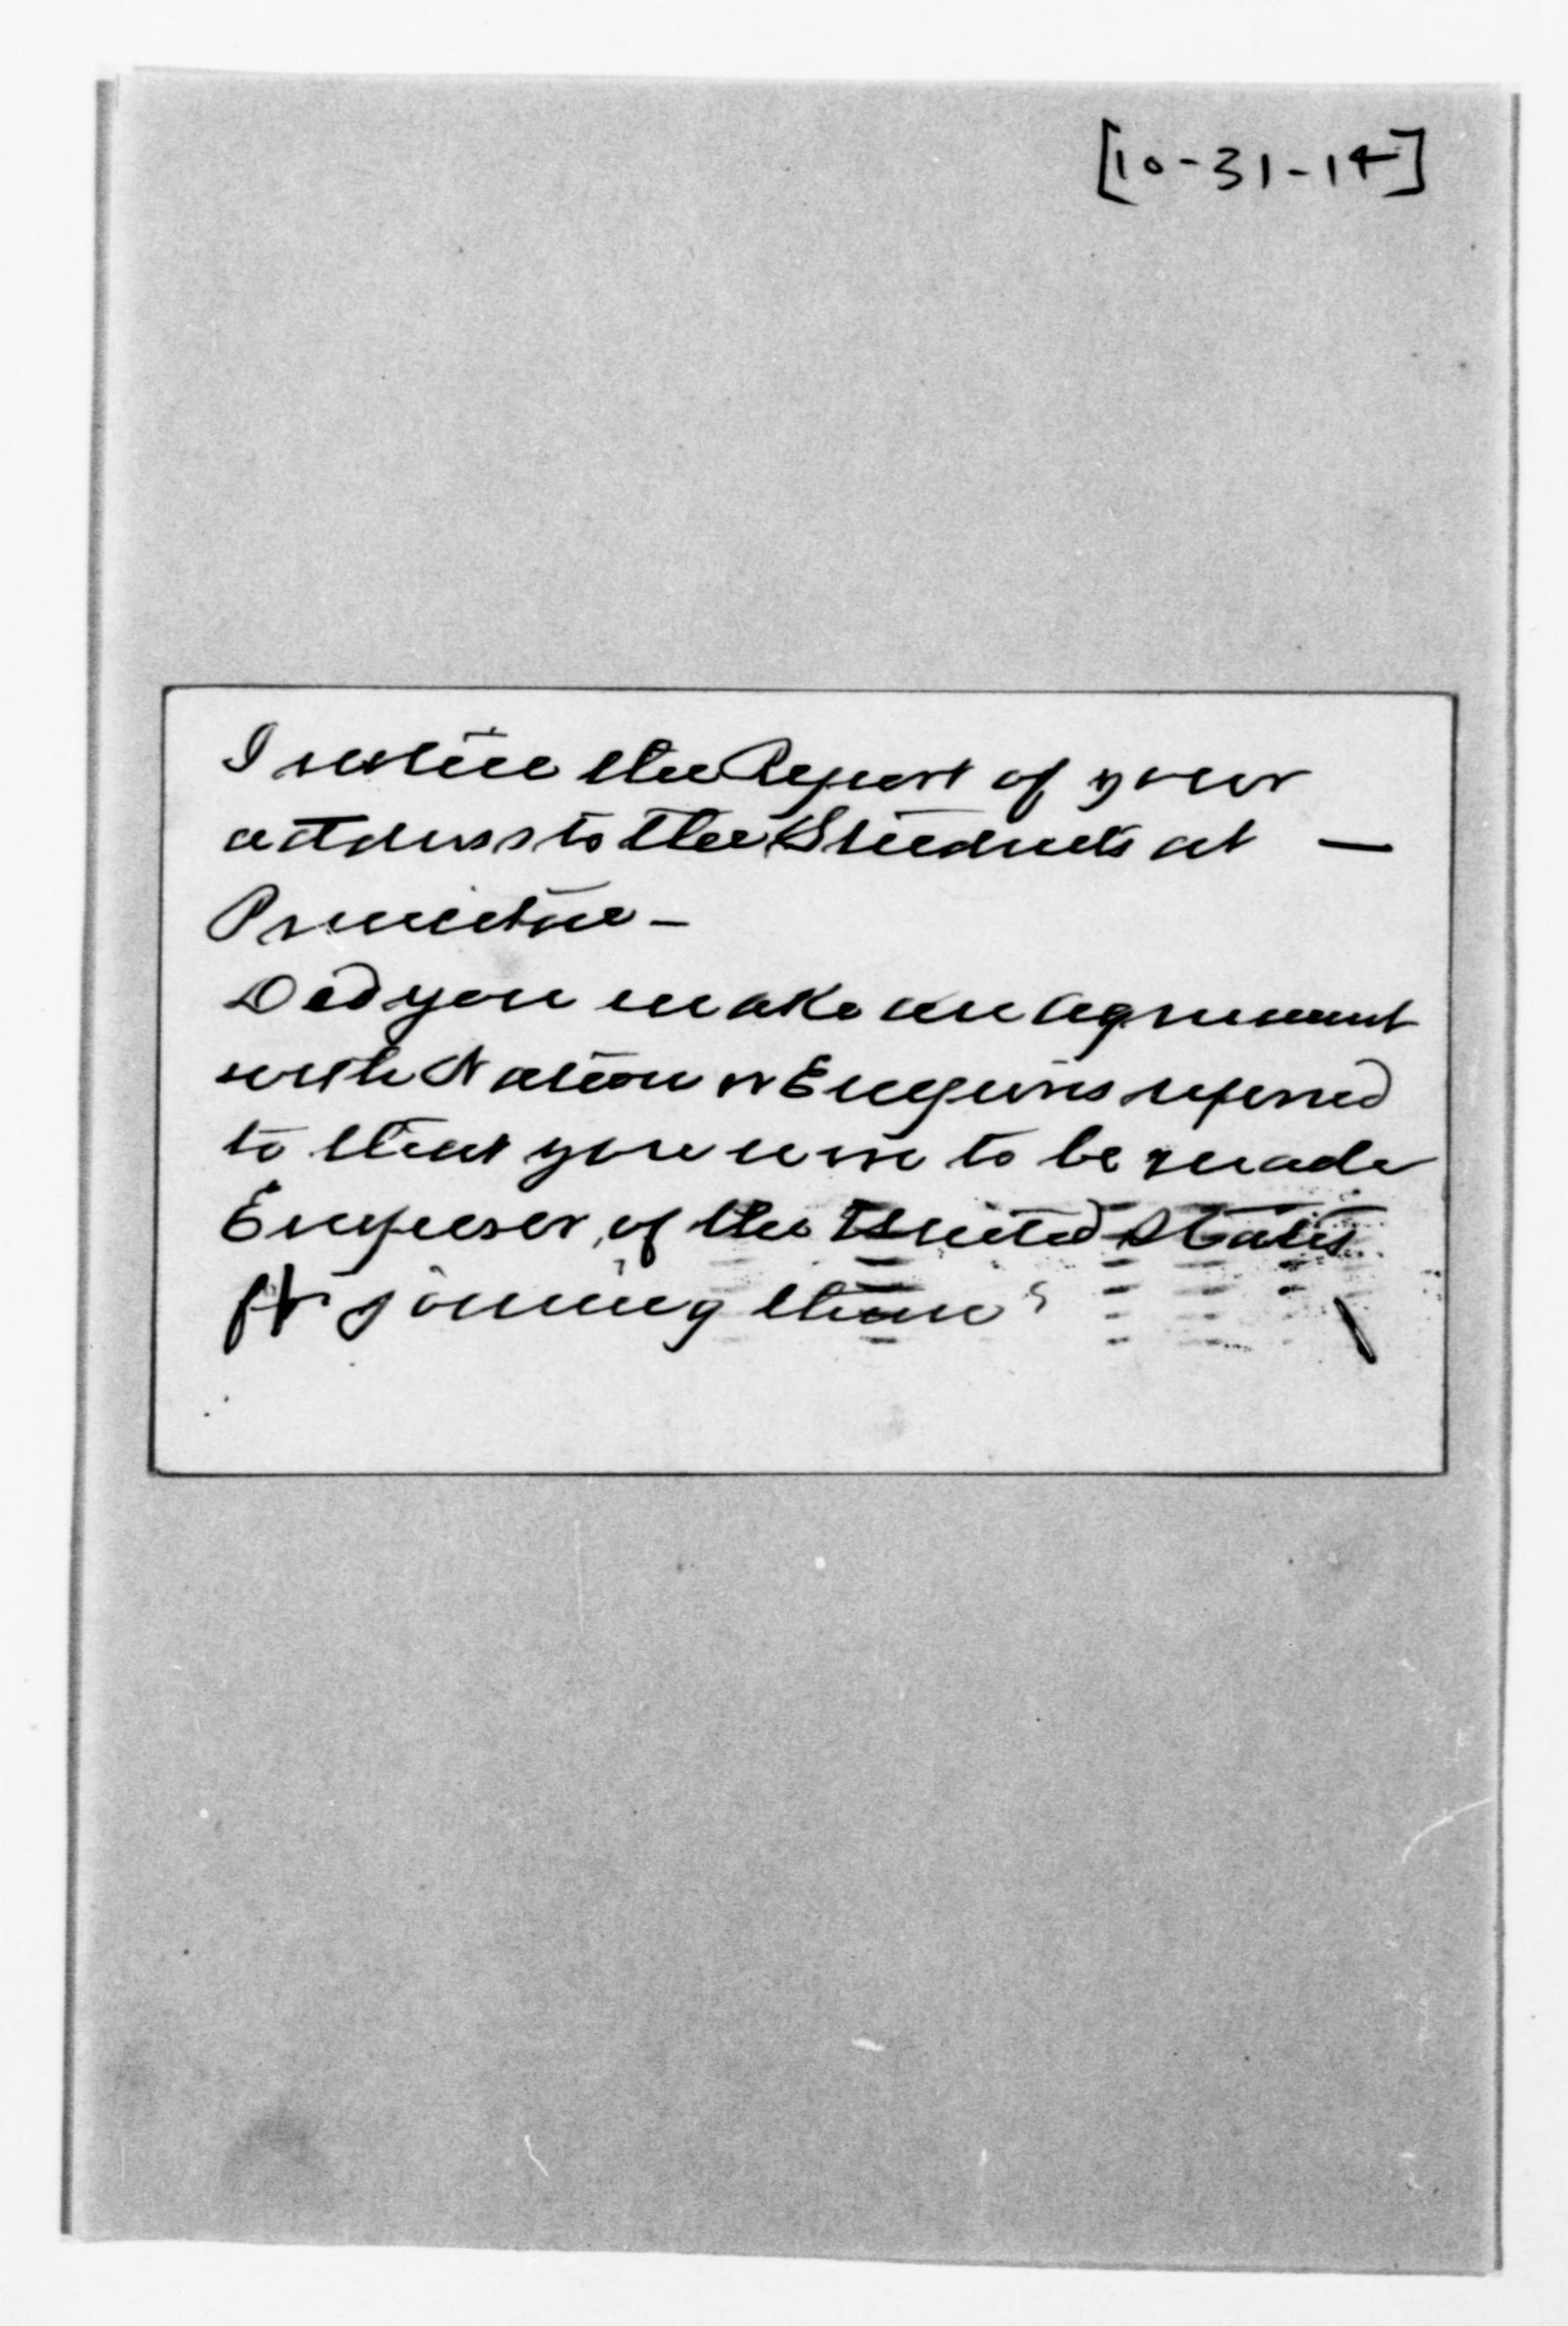 [10-31-14]
I notice the Report of your
address to the Students at —
Princeton —
Did you make an agreement
with Nation or Empires referred
to that you were to be made
Emperor, of the United States
for joining them?